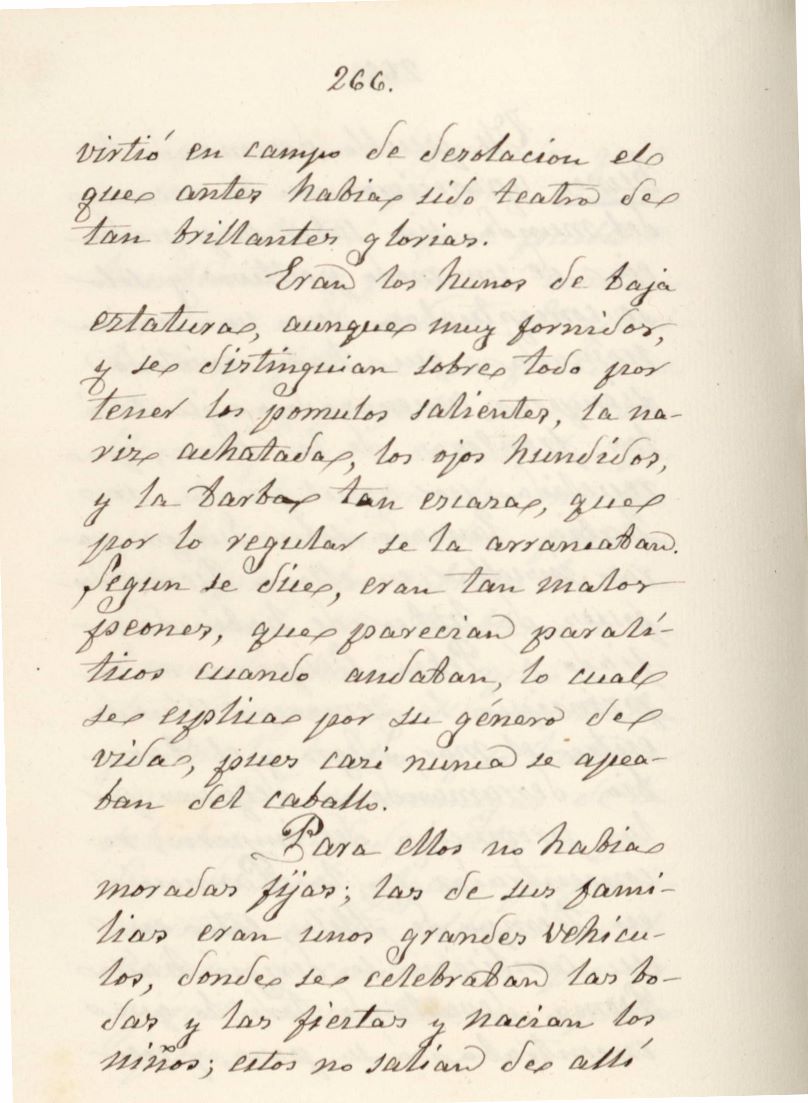 266.
virtió en campo de desolacion el
que antes habia sido teatro de
tan brillantes glorias.
Eran los hunos de baja
estatura, aunque muy fornidos,
y se distinguian sobre todo por
tener los pomulos salientes, la na-
riz achatada, los ojos hundidos,
y la barba tan escasa, que
por lo regular se la arrancaban.
Segun se dice, eran tan malos
peones, que parecian paralí-
ticos cuando andaban, lo cual
se esplica por su género de
vida, pues casi nunca se apea-
ban del caballo.
Para ellos no habia
moradas fijas; las de sus fami-
lias eran unos grandes vehicu-
los, donde se celebraban las bo-
das y las fiestas y nacian los
niños; estos no salian de allí